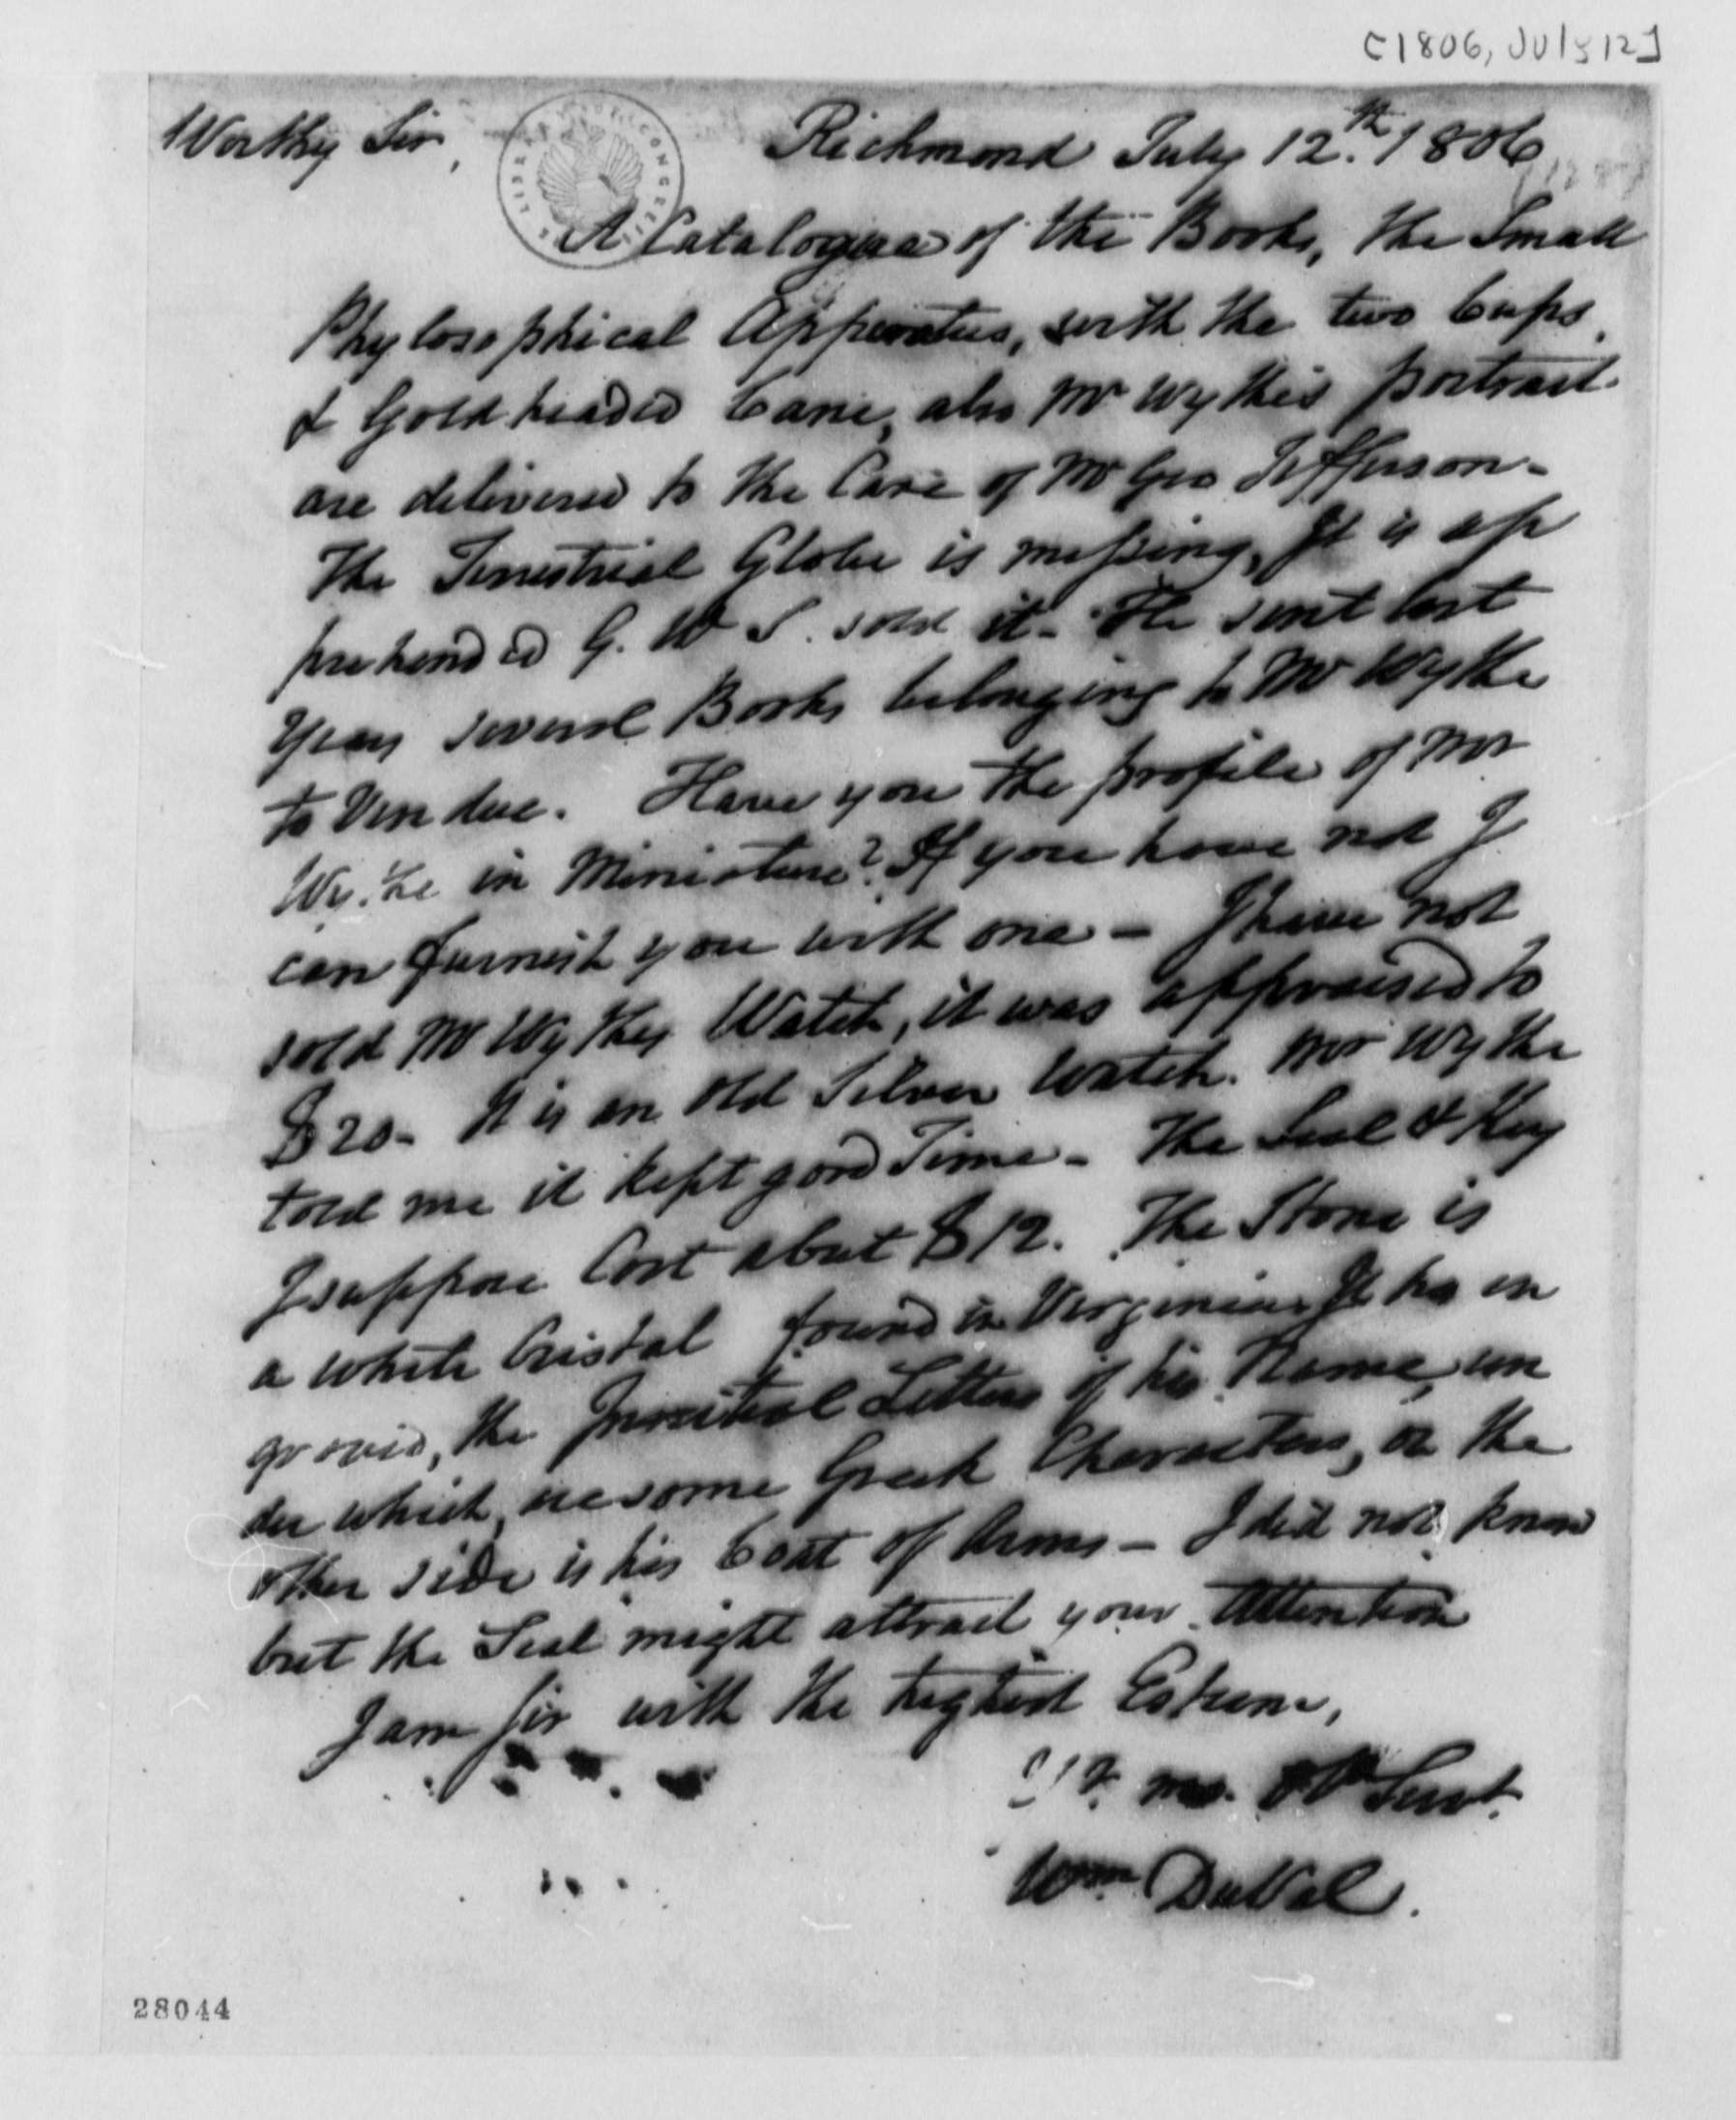 [1806, July 12]
Worthy Sir,
Richmond July 12.th 1806
LIBRARY OF CONGRESS
A Catalogue of the Books, the Small
Phylosophical Apparatus, with the two Cups
& Gold headed Cane, also Mr Wythe's portrait
are delivered to the Care of Mr Geo Jefferson-
The Terrestrial Globe is missing, It is ap
prehended G. W S. sold it- He sent last
Year several Books belonging to Mr Wythe
to Vendue. Have you the profile of Mr
Wythe in Miniature? If you have not I
can furnish you with one - I have not
sold Mr Wythes Watch, it was appraised to
$20- It is an old Silver Watch. Mr Wythe
told me it kept good Time- The Seal & Key
I suppose Cost about $12. The Stone is
a white Cristal found in Virginia It has en
graved, the Letters of his Name, un
der which, are some Greek Characters, on the
other side is his Coat of Arms - I did not know
but the Seal might attract your Attention
I am Sir with the highest Esteem,
Yr. mo. Ob Servt.
Wm DuVal.
28044